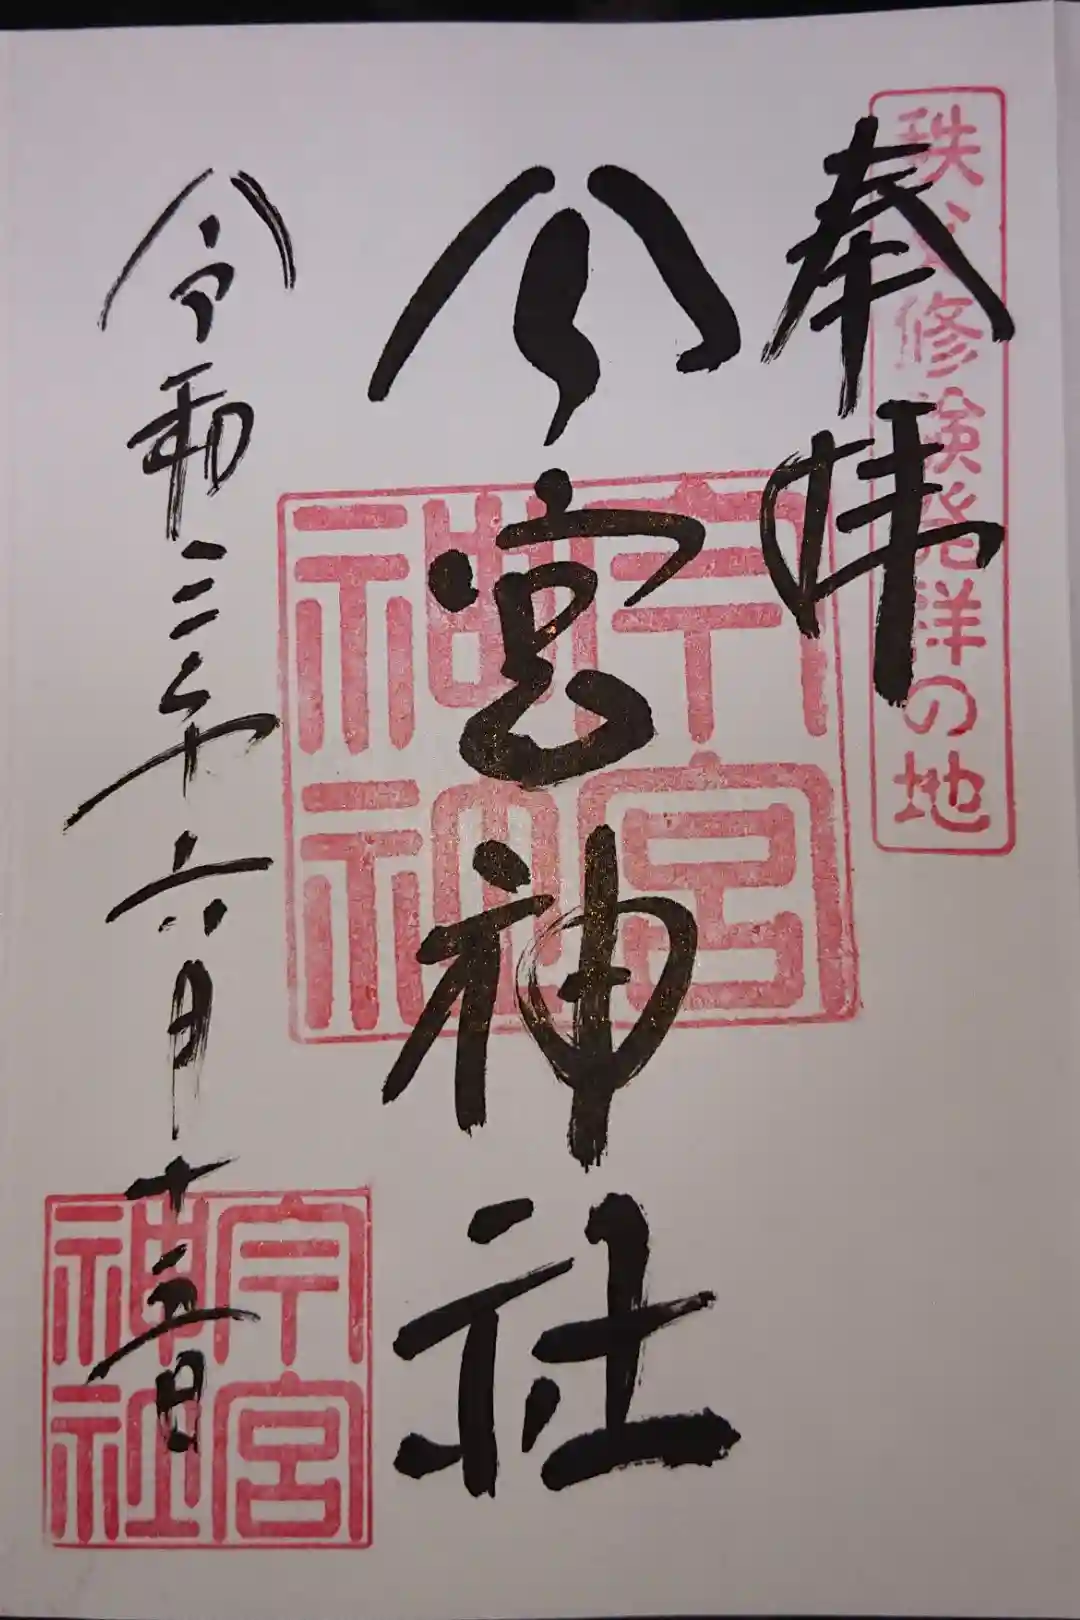 秩父修験発祥の地
奉拝
今宮神社
今宮神社
令和三年六月十五日
今宮神社